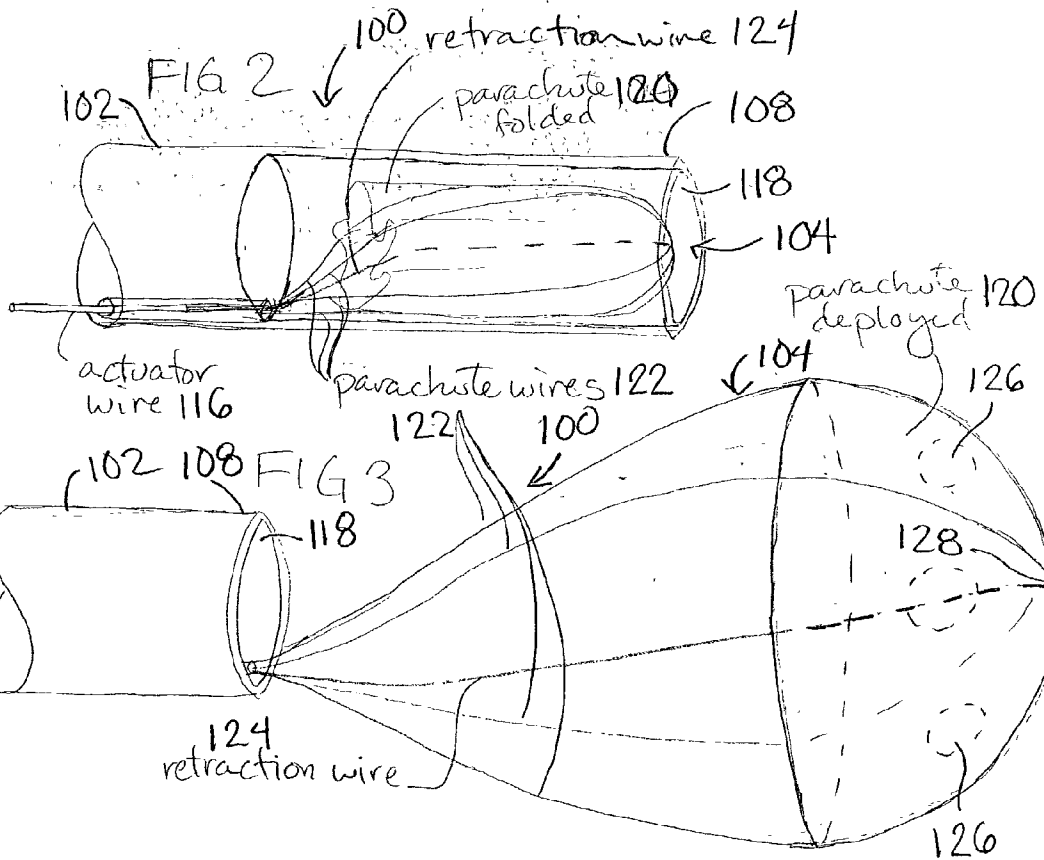 100 retraction wire 124
FIG 2
102
parachute 120
folded
108
118
104
parachute 120
deployed
actuator
wire 116
parachute wires 122
104
126
122
100
102 108 FIG 3
118
128
124
retraction wire
126